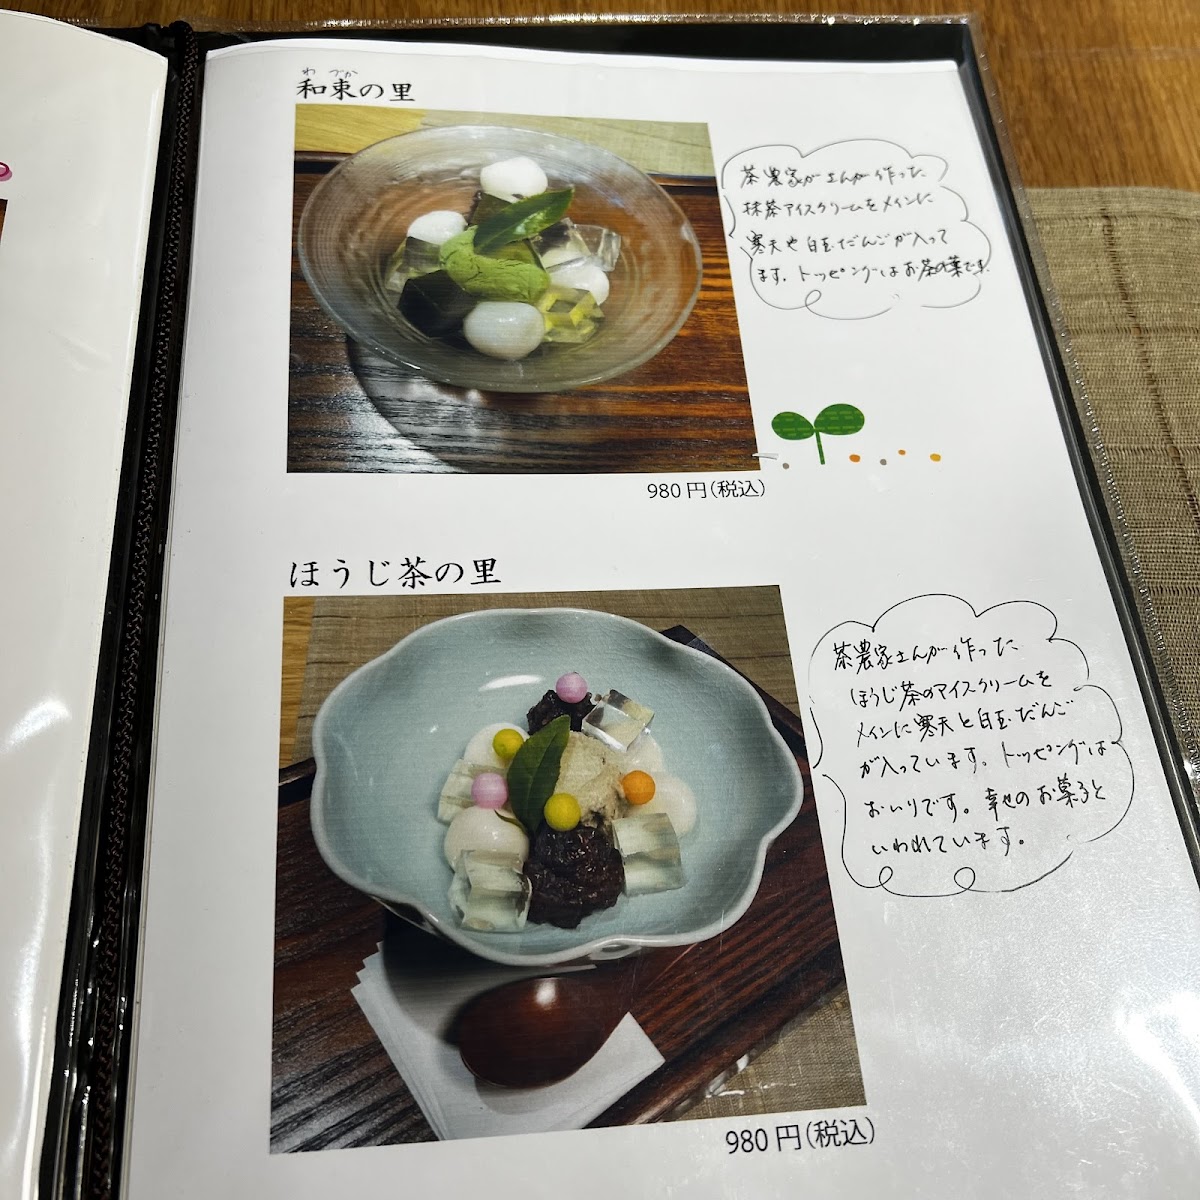 わづか
和束の里
茶農家がさんが作った
抹茶アイスクリームをメインに
寒天や白玉だんごが入って
ます。トッピングはお茶の葉です。
980円(税込)
ほうじ茶の里
茶農家さんが作った
ほうじ茶のアイスクリームを
メインに寒天と白玉だんご
が入っています。トッピングは
おいりです。幸せのお菓子と
いわれています。
980円(税込)